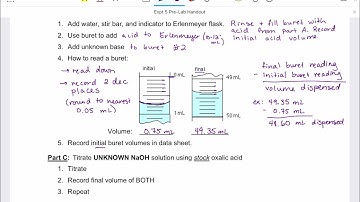 Expt 5 Pre-Lab Handout
1. Add water, stir bar, and indicator to Erlenmeyer flask. Rinse + fill buret with
2. Use buret to add acid to Erlenmeyer (8-12 mL) acid from part A. Record
initial acid volume.
3. Add unknown base to buret #2
4. How to read a buret:
→ read down
→ record 2 dec
places
(round to nearest
0.05 mL)
initial
0 mL
1 mL
final
49 mL
50 mL
final buret reading
- initial buret reading
volume dispensed
ex: 49.35 mL
- 0.75 mL
48.60 mL dispensed
Volume: 0.75 mL 49.35 mL
5. Record initial buret volumes in data sheet.
Part C: Titrate UNKNOWN NaOH solution using stock oxalic acid
1. Titrate
2. Record final volume of BOTH
3. Repeat